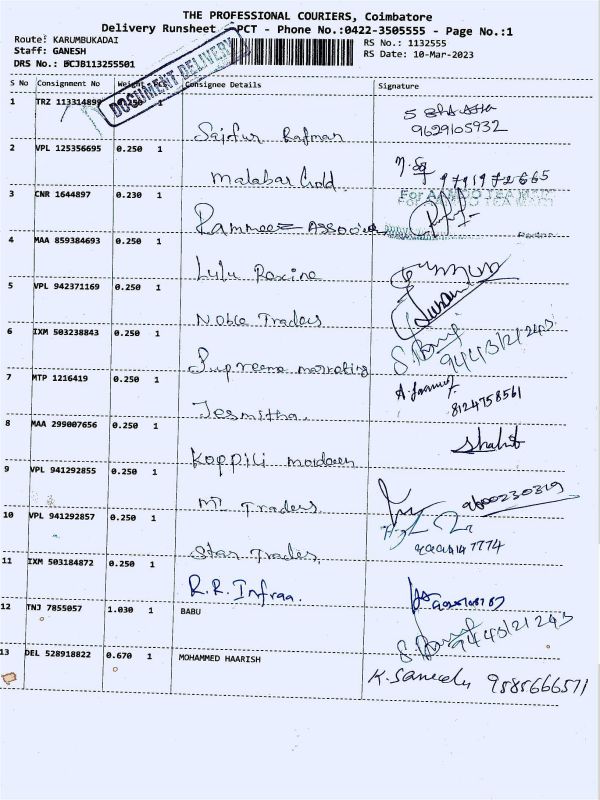 THE PROFESSIONAL COURIERS, Coimbatore
Delivery Runsheet - PCT - Phone No.:0422-3505555 - Page No.:1
Route: KARUMBUKADAI RS No.: 1132555
Staff: GANESH RS Date: 10-Mar-2023
DRS No.: BCJB113255501
DOCUMENT DELIVERY
S No Consignment No Weight Consignee Details Signature
1 TRZ 113314899 0.250 1
Saifur Rahman 9629105932
2 VPL 125356695 0.250 1
Malabar Gold
3 CNR 1644897 0.230 1
Rammeez Associa
4 MAA 859384693 0.250 1
Lulu Roxine
5 VPL 942371169 0.250 1
Noble Traders
6 IXM 503238843 0.250 1
Supreme marrating 9443121243
7 MTP 1216419 0.250 1
Jesmitha 8124758561
8 MAA 299007656 0.250 1
Koppili moideen Shahib
9 VPL 941292855 0.250 1
MT Traders 9600230329
10 VPL 941292857 0.250 1
Star Trades
11 IXM 503184872 0.250 1
R.R. Infraa.
12 TNJ 7855057 1.030 1 BABU
9443121243
13 DEL 528918822 0.670 1 MOHAMMED HAARISH
K. Sameedu 9585666571